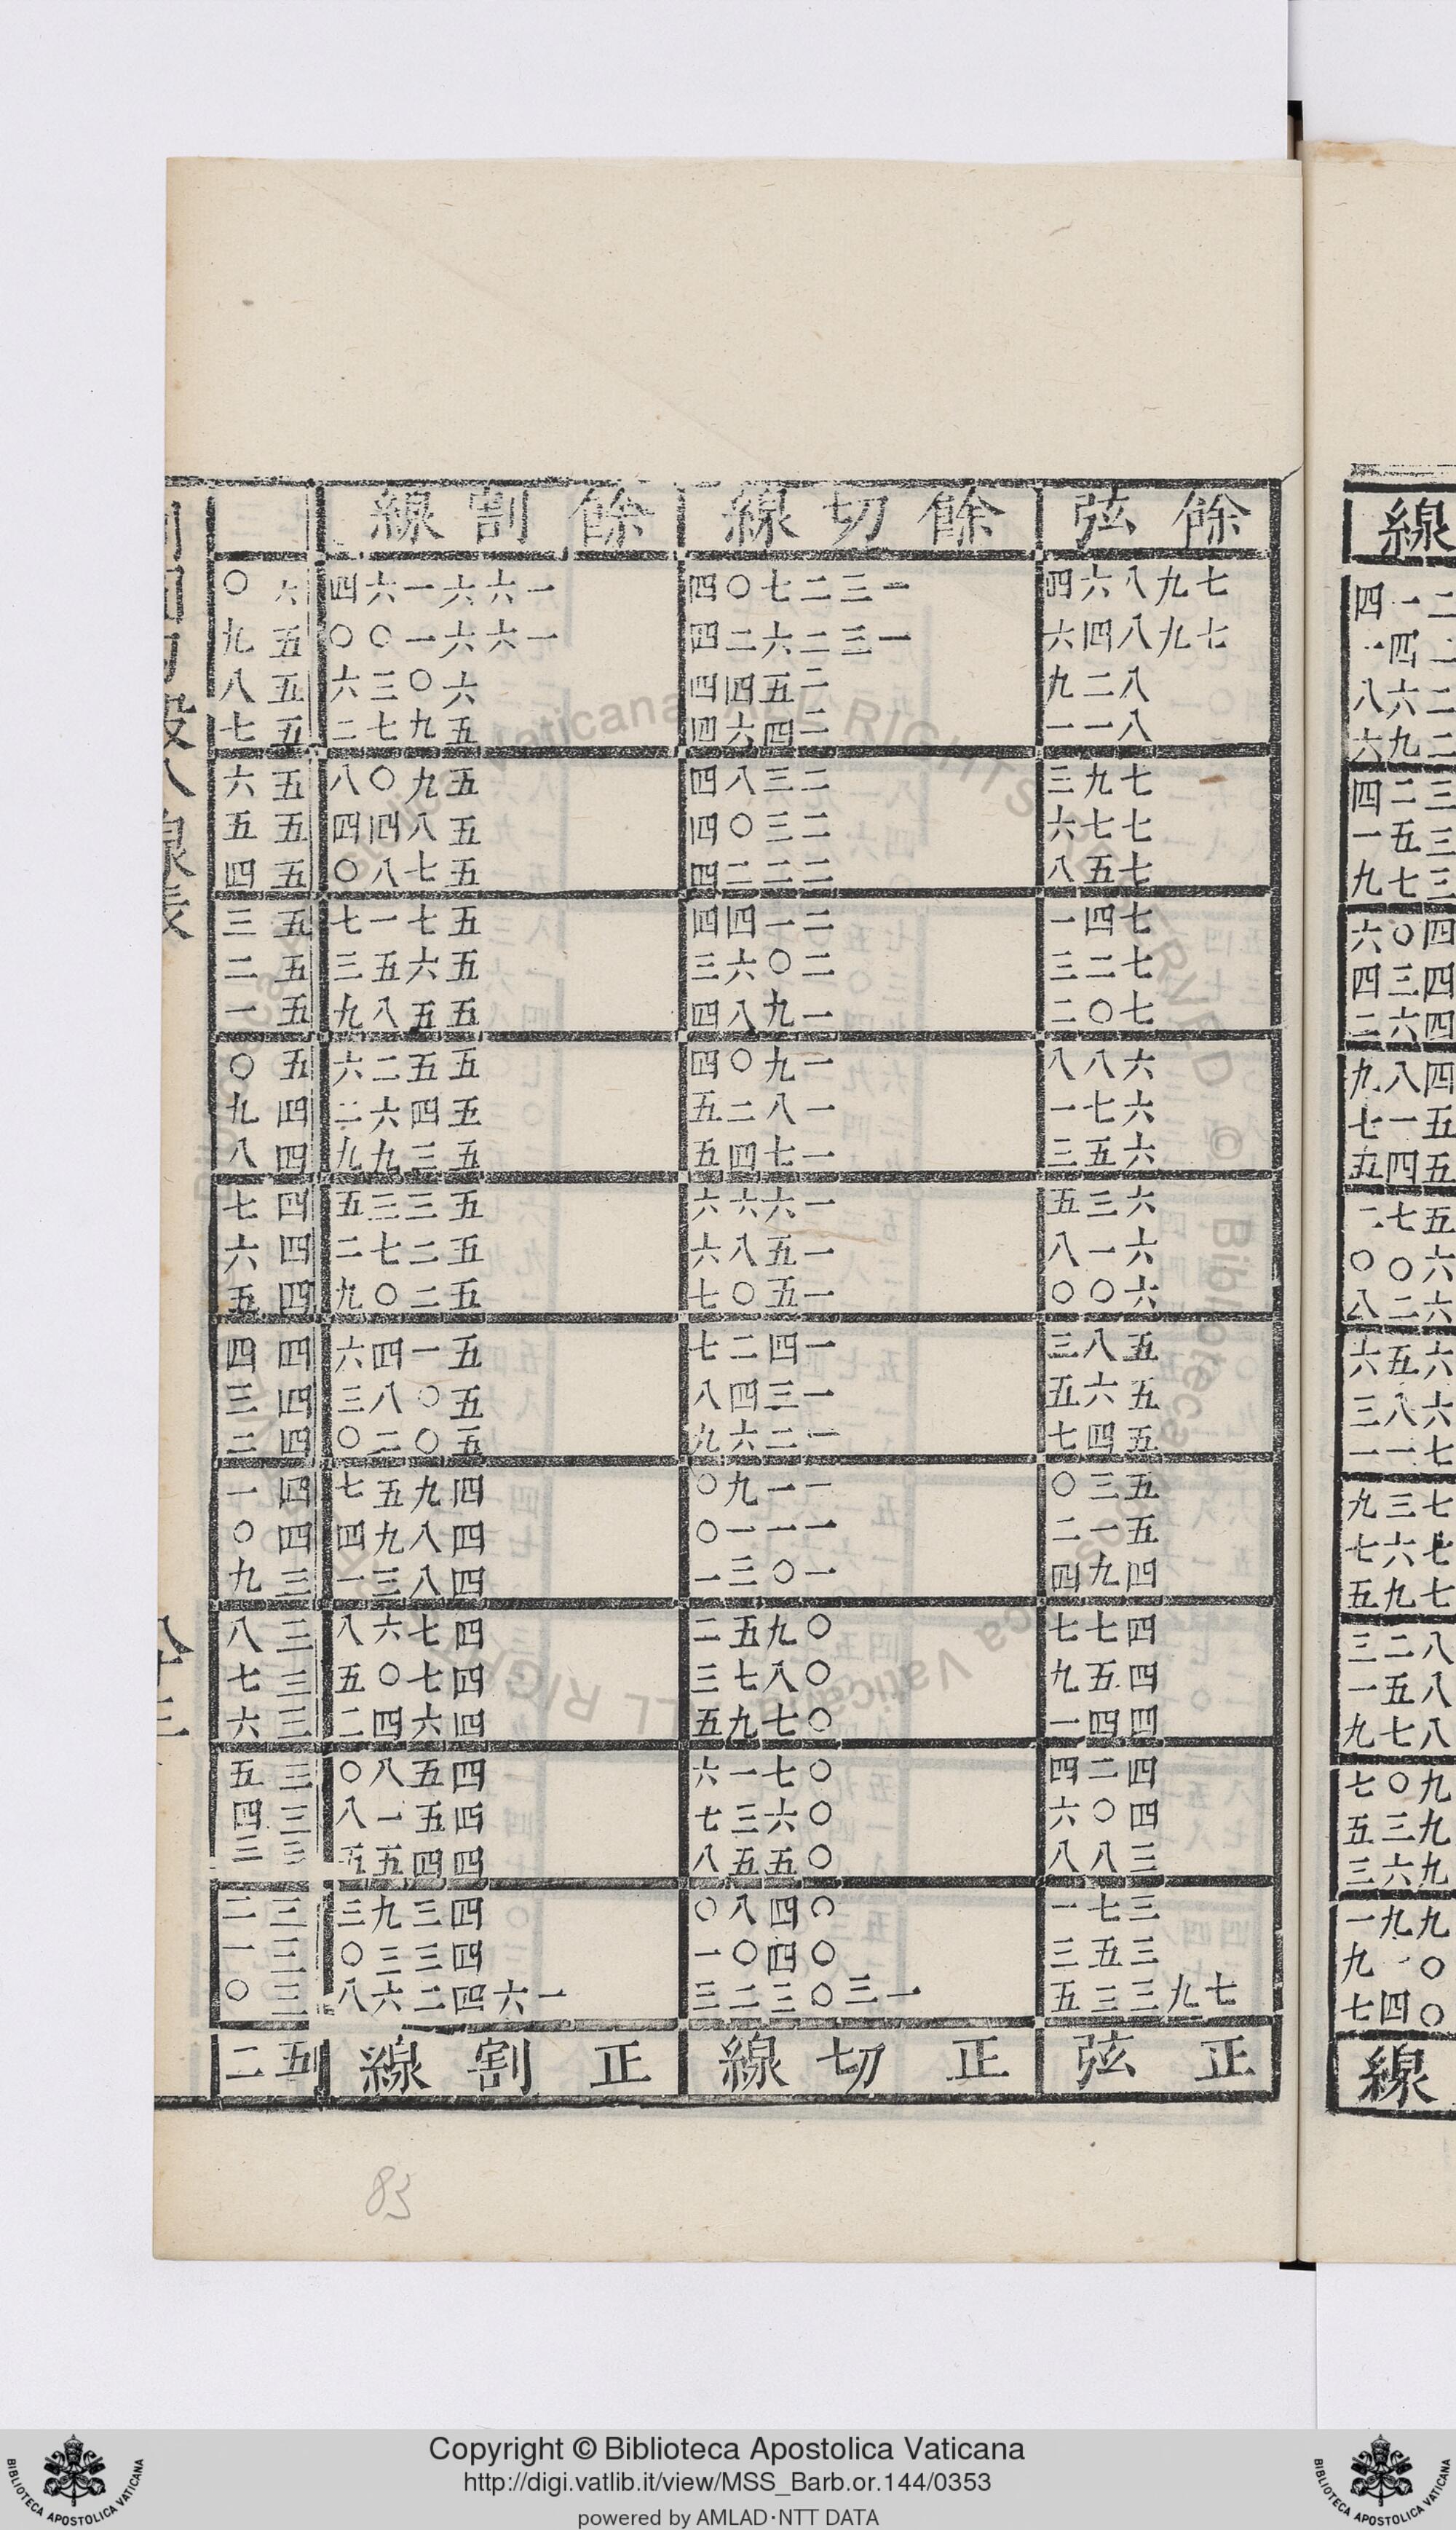 線
二一四
二四一
二六八
二九六
三二四
三五一
三七九
四〇六
四三四
四六二
四八九
五一七
五四五
五七二
六〇〇
六二八
六五六
六八三
七一一
七三九
七六七
七九五
八二三
八五一
八七九
九〇七
九三五
九六三
九九一
〇一九
〇四七
線
餘弦 餘切線 餘割線
七九八六四 一三二七〇四 一六六一六四 六〇
七九八四六 一三二六二四 一六六一〇〇 五九
八二九 二五四四 六〇三六 五八
八一一 二四六四 五九七二 五七
七九三 二三八四 五九〇八 五六
七七六 二三〇四 五八四四 五五
七五八 二二二四 五七八〇 五四
七四一 二一四四 五七一七 五三
七二三 二〇六三 五六五三 五二
七〇二 一九八四 五五八九 五一
六八八 一九〇四 五五二六 五〇
六七一 一八二五 五四六二 四九
六五三 一七四五 五三九九 四八
六三五 一六六六 五三三五 四七
六一八 一五八六 五二七二 四六
六〇〇 一五〇七 五二〇九 四五
五八三 一四二七 五一四六 四四
五六五 一三四八 五〇八三 四三
五四七 一二六九 五〇二〇 四二
五三〇 一一九〇 四九五七 四一
五一二 一一一〇 四八九四 四〇
四九四 一〇三一 四八三一 三九
四七七 〇九五二 四七六八 三八
四五九 〇八七三 四七〇五 三七
四四一 〇七九五 四六四二 三六
四二四 〇七一六 四五八〇 三五
四〇六 〇六三七 四五一八 三四
三八八 〇五五八 四四五五 三三
三七一 〇四八〇 四三九三 三二
三五三 〇四〇一 四三三〇 三一
七九三三五 一三〇三二三 一六四二六八 三〇
正弦 正切線 正割線 五二
83
Copyright © Biblioteca Apostolica Vaticana
http://digi.vatlib.it/view/MSS_Barb.or.144/0353
powered by AMLAD·NTT DATA
BIBLIOTECA APOSTOLICA VATICANA
BIBLIOTECA APOSTOLICA VATICANA